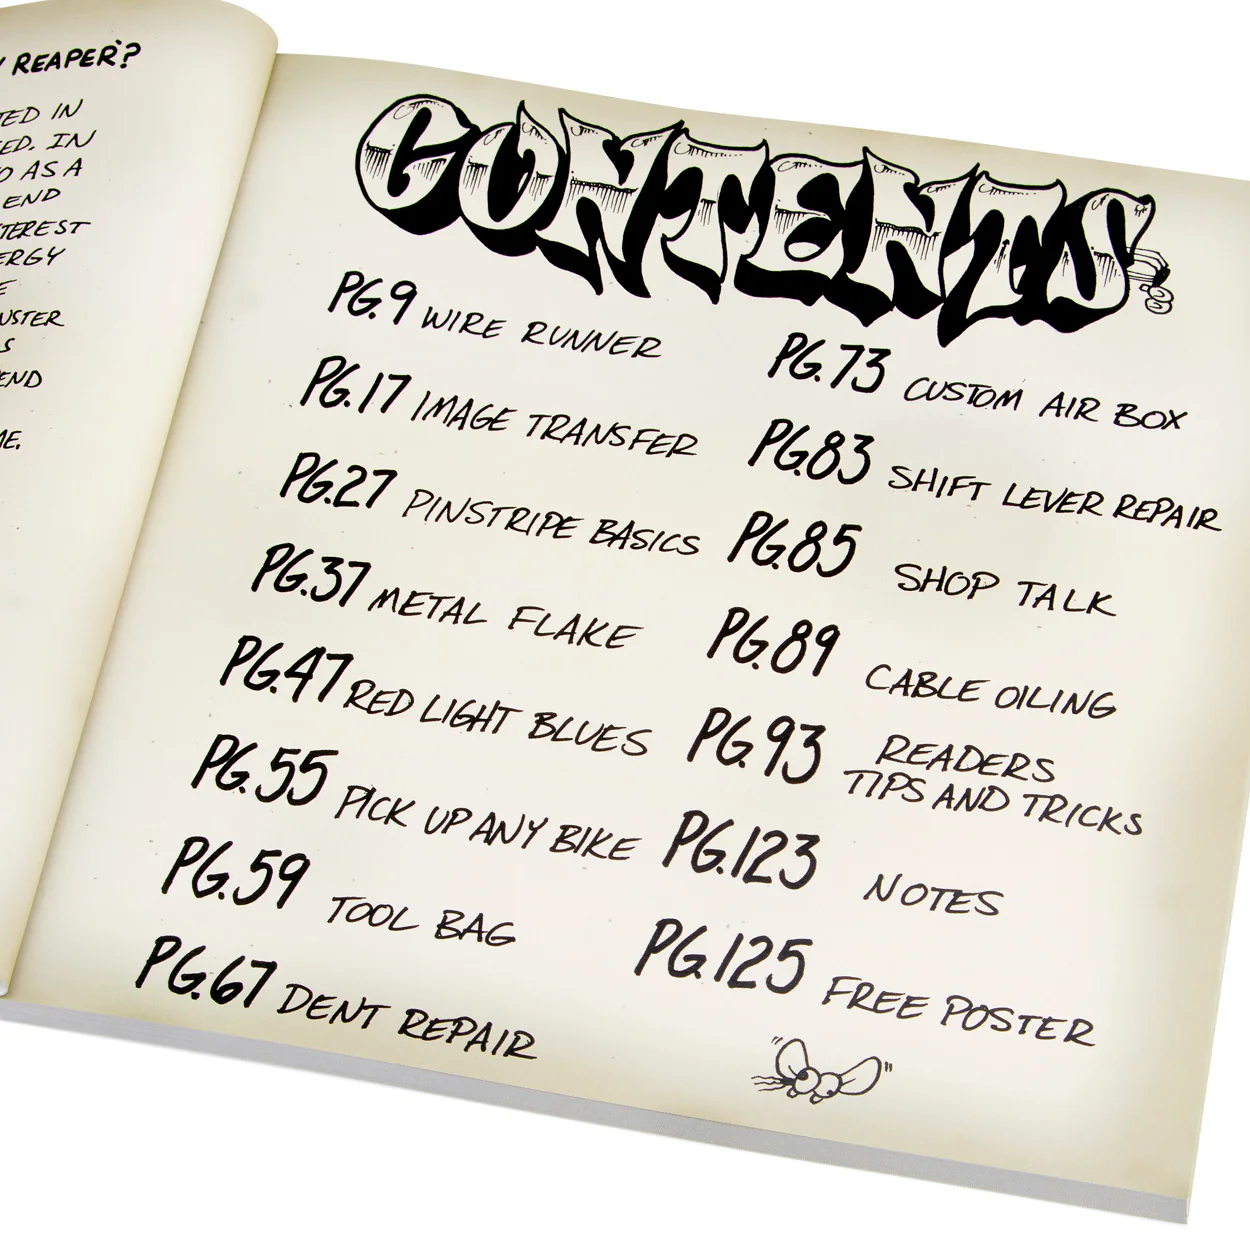 REAPER?
TED IN
ED. IN
O AS A
END
TEREST
ERGY
E
USTER
S
END
ME.
CONTENTS
PG.9 WIRE RUNNER
PG.17 IMAGE TRANSFER
PG.27 PINSTRIPE BASICS
PG.37 METAL FLAKE
PG.47 RED LIGHT BLUES
PG.55 PICK UP ANY BIKE
PG.59 TOOL BAG
PG.67 DENT REPAIR
PG.73 CUSTOM AIR BOX
PG.83 SHIFT LEVER REPAIR
PG.85 SHOP TALK
PG.89 CABLE OILING
PG.93 READERS
TIPS AND TRICKS
PG.123 NOTES
PG.125 FREE POSTER